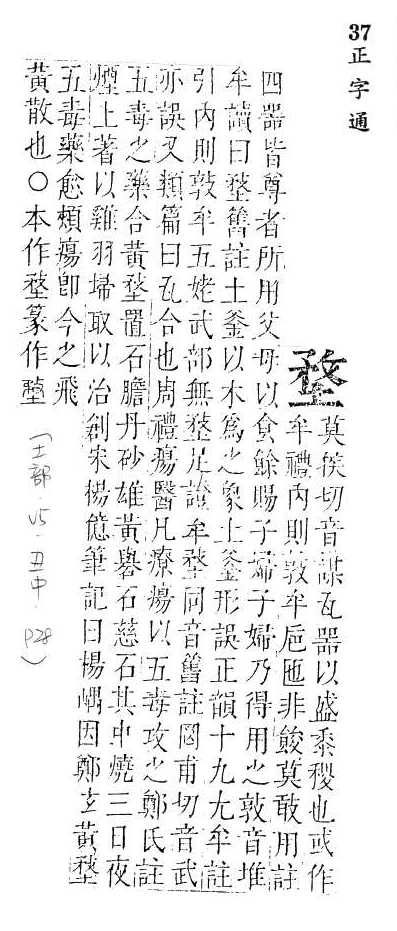 37 正字通
堥
莫侯切音謀瓦器以盛黍稷也或作
牟禮內則敦牟卮匜非餕莫敢用註
四器皆尊者所用父母以食餘賜子婦子婦乃得用之敦音堆
牟讀曰堥舊註土釜以木爲之象土釜形誤正韻十九尤牟註
引內則敦牟五姥武部無堥足證牟堥同音舊註罔甫切音武
亦誤又類篇曰瓦合也周禮瘍醫凡療瘍以五毒攻之鄭氏註
五毒之藥合黃堥置石膽丹砂雄黃礜石慈石其中燒三日夜
煙上著以雞羽埽取以治創宋楊億筆記曰楊嵎因鄭玄黃堥
五毒藥愈頰瘍卽今之飛
黃散也○本作堥篆作
(土部·V5·丑中·P28)